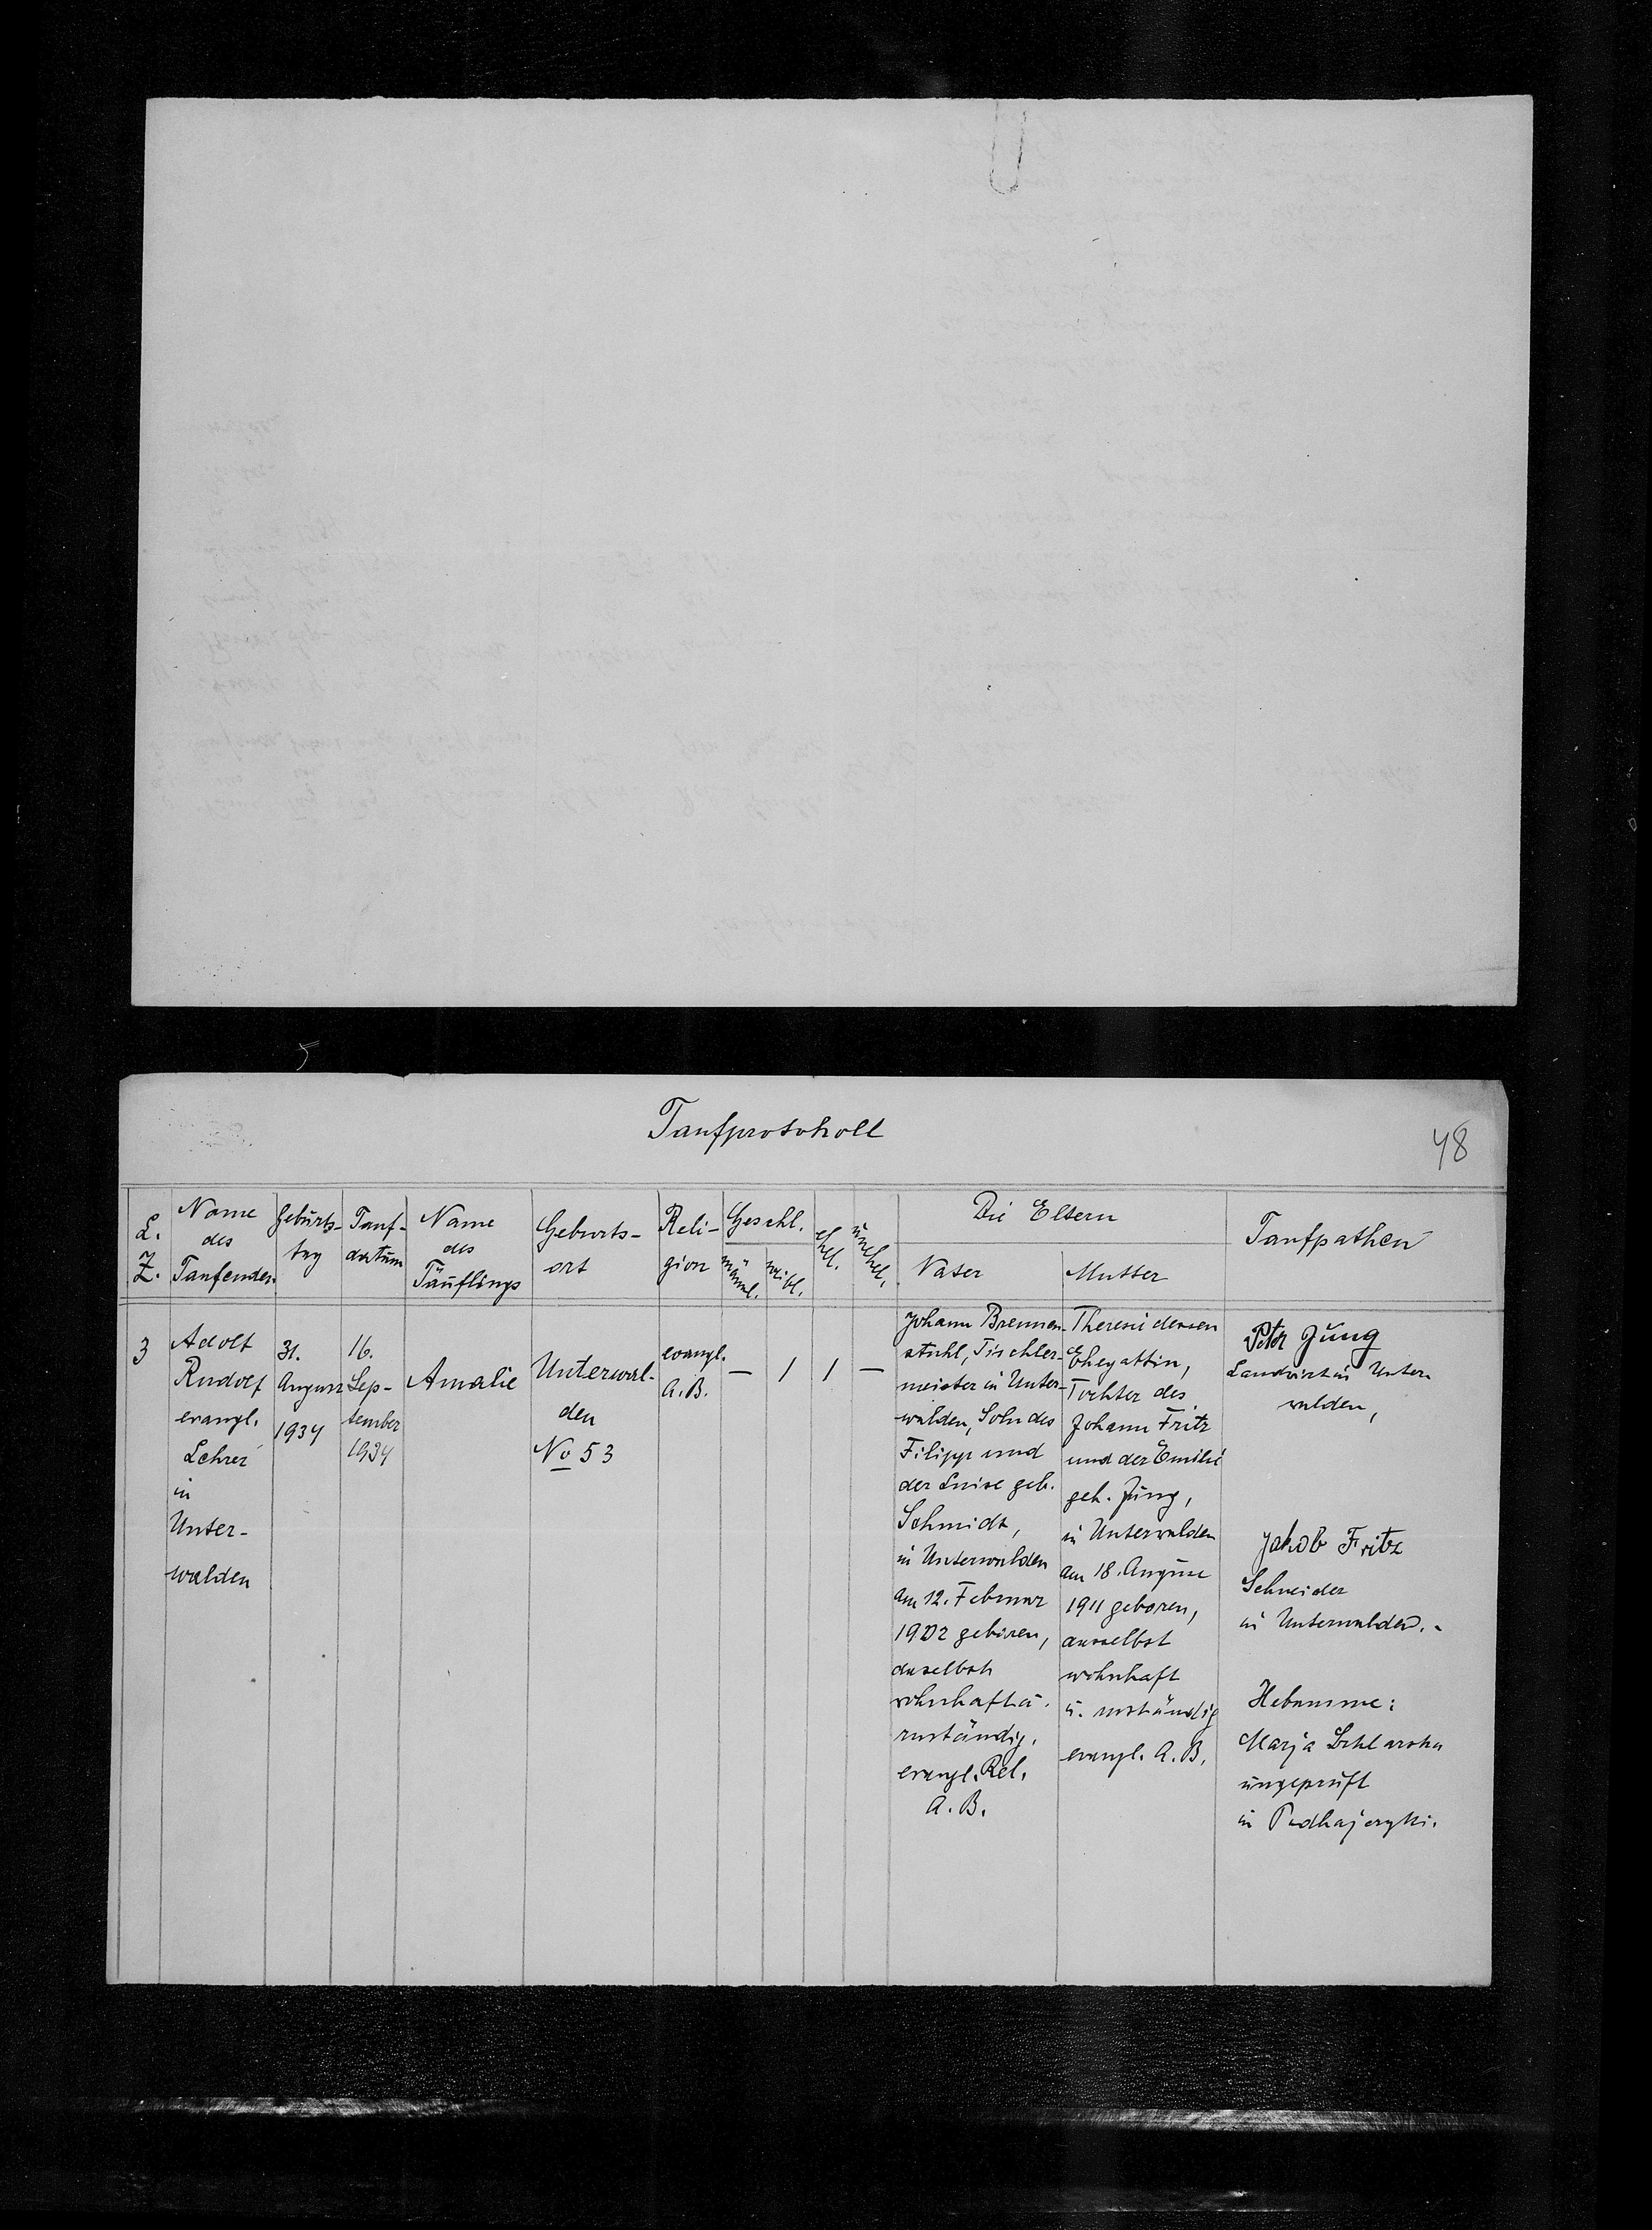 Taufprotokoll
48
L.
Z.
Name
des
Taufenden
Geburts-
tag
Tauf-
datum
Name
des
Täuflings
Geburts-
ort
Reli-
gion
Geschl.
männl.
weibl.
ehel.
unehel.
Die Eltern
Vater
Mutter
Taufpathen
3
Adolf
Rudolf
evangl.
Lehrer
in
Unter-
walden
31.
August
1934
16.
Sep-
tember
1934
Amalie
Unterwal-
den
No 53
evangl.
A.B.
—
1
1
—
Johann Brennen-
stuhl, Tischler-
meister in Unter-
walden, Sohn des
Filipp und
der Luise geb.
Schmidt,
in Unterwalden
am 12. Februar
1902 geboren,
daselbst
wohnhaft u.
zuständig,
evangl. Rel.
A. B.
Theresie dessen
Ehegattin,
Tochter des
Johann Fritz
und der Emilie
geb. Jung,
in Unterwalden
am 18. August
1911 geboren,
daselbst
wohnhaft
u. zuständig
evangl. A. B.
Peter Jung
Landwirt in Unter-
walden,
Jakob Fritz
Schneider
in Unterwalden.
Hebamme:
Marja
ungeprüft
in Podhajczyki.